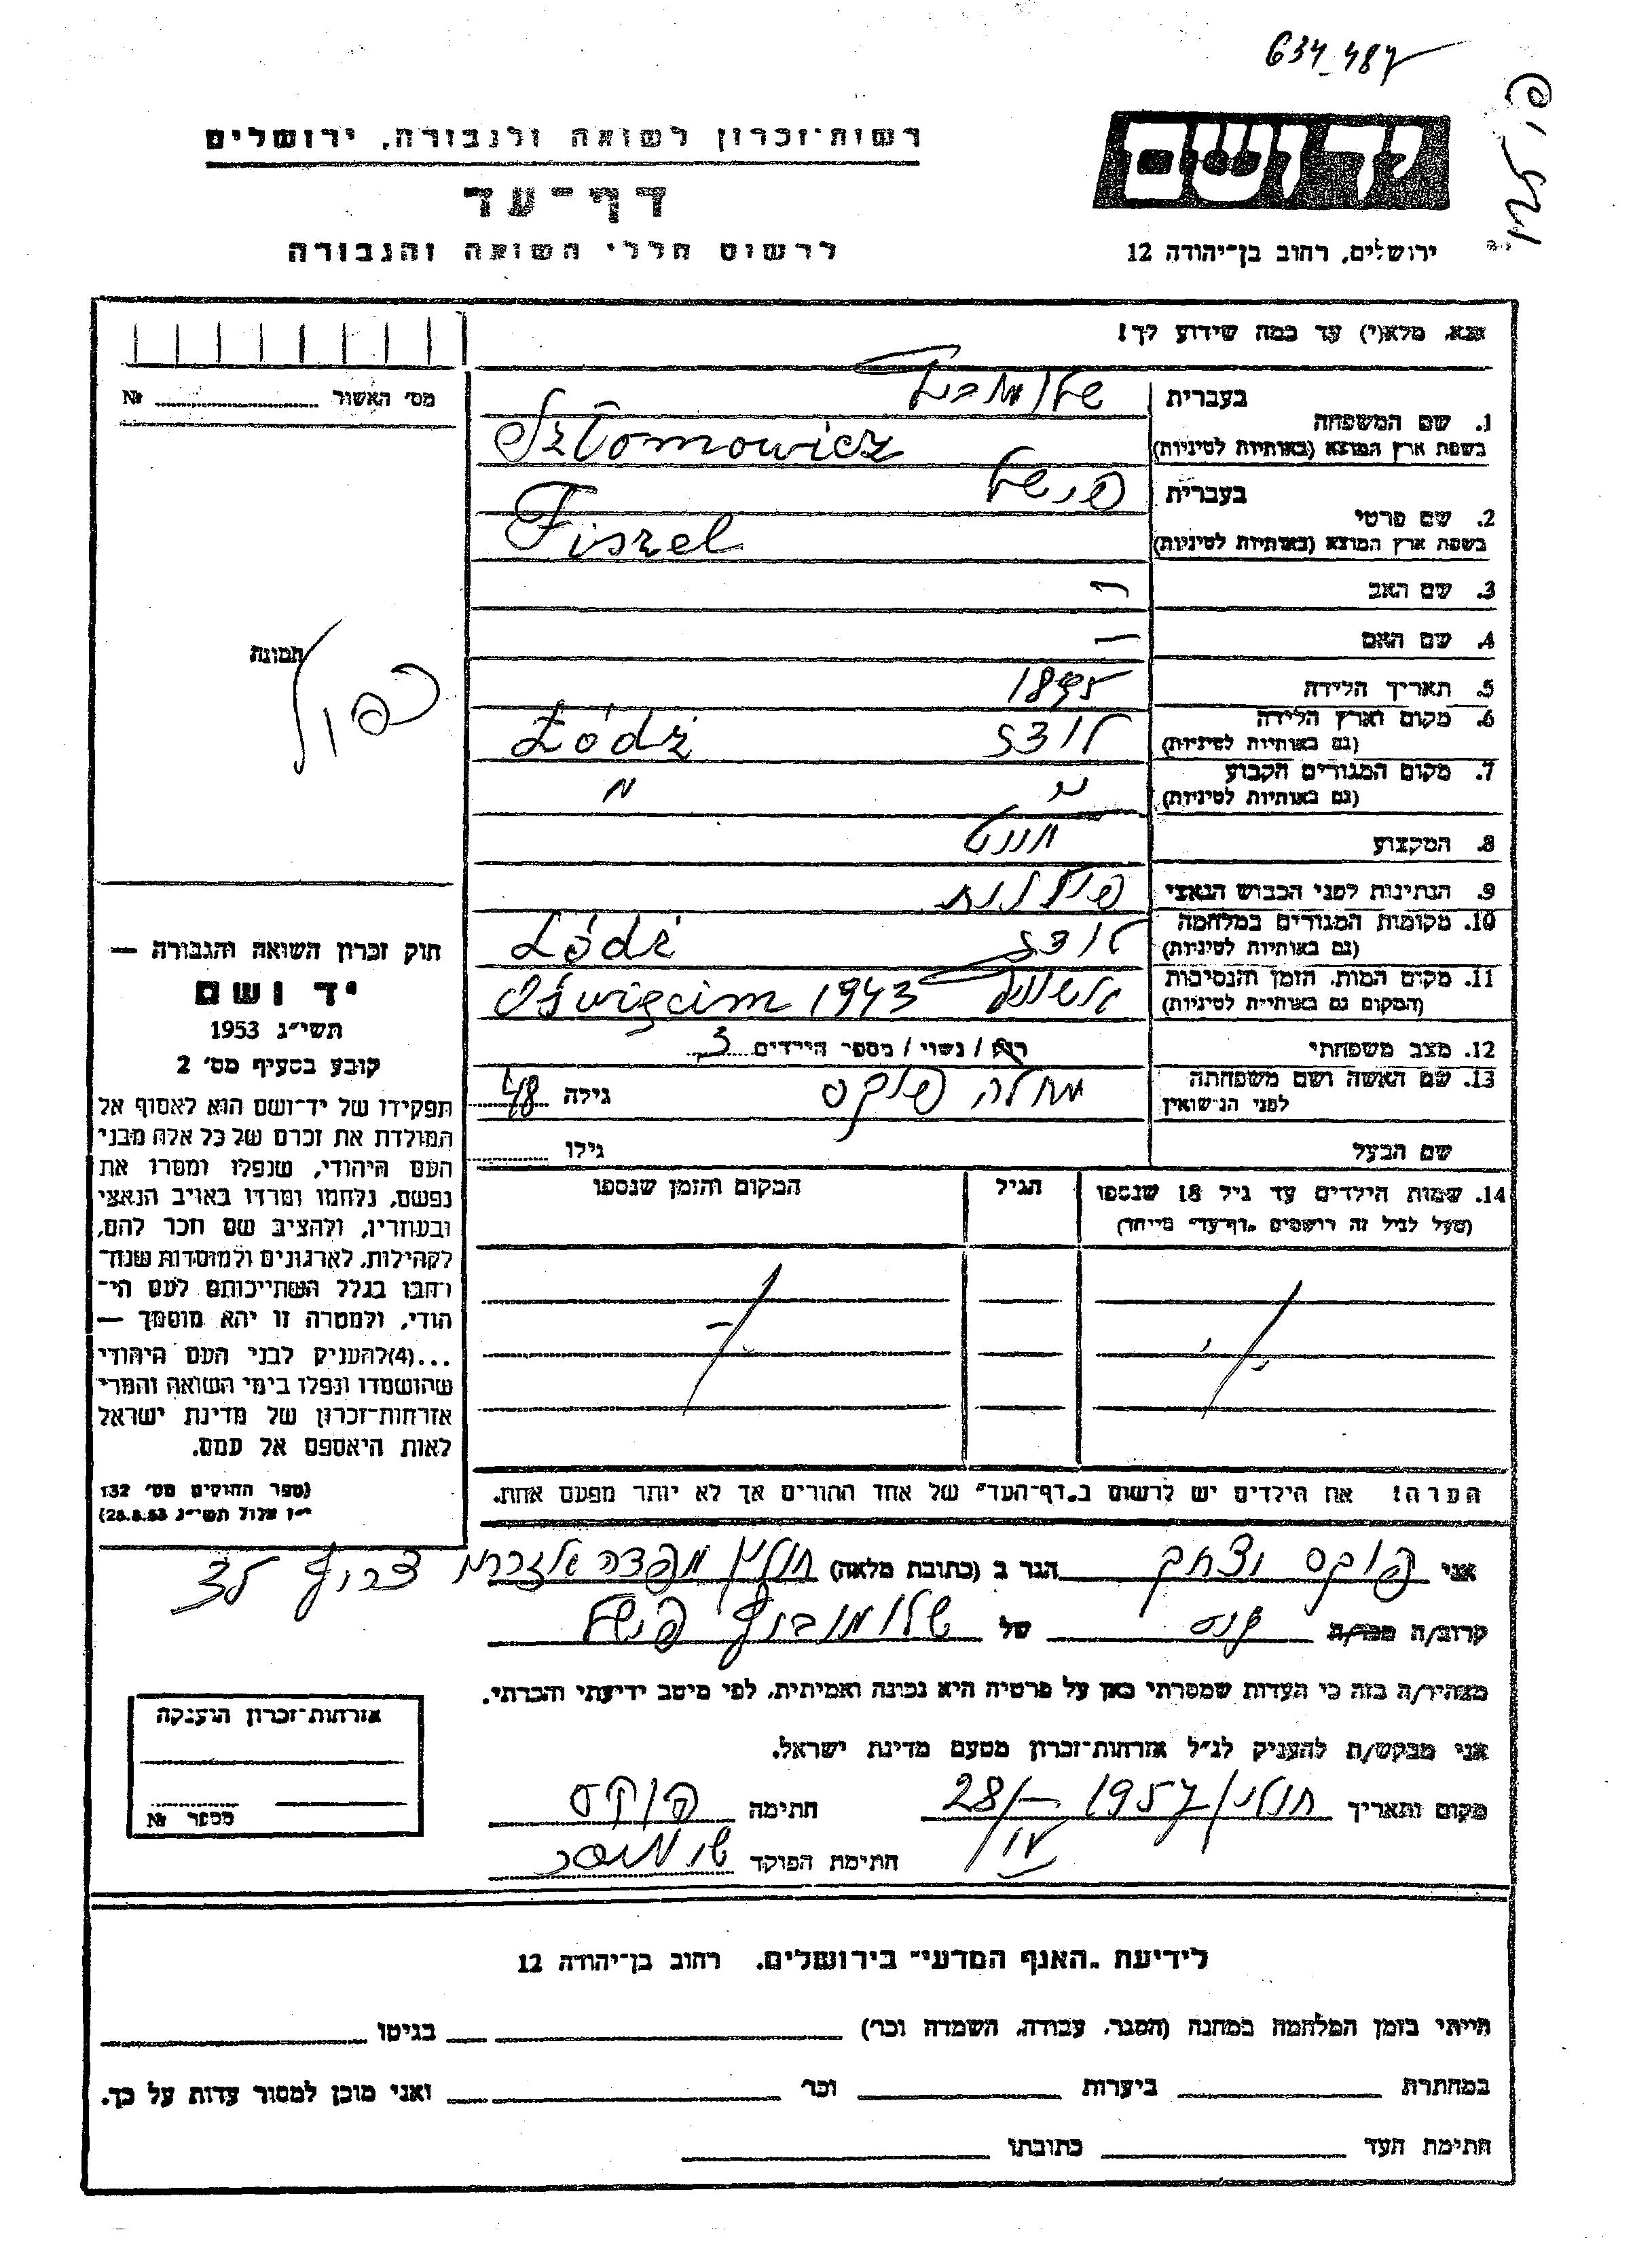 634_487
רשות-זכרון לשואה ולגבורה, ירושלים
יד ושם
דף-עד
לרשום חללי השואה והגבורה
ירושלים, רחוב בן-יהודה 12
אנא, מלא(י) עד כמה שידוע לך!
מס' האשור № 
בעברית
1. שם המשפחה
בשפת ארץ המוצא (באותיות לטיניות) Szlomowicz
בעברית פישל
2. שם פרטי
בשפת ארץ המוצא (באותיות לטיניות) Fiszel
3. שם האב —
4. שם האם —
5. תאריך הלידה 1895
6. מקום וארץ הלידה לודז Łódź
(גם באותיות לטיניות)
7. מקום המגורים הקבוע " "
(גם באותיות לטיניות)
8. המקצוע
9. הנתינות לפני הכבוש הנאצי פולנית
10. מקומות המגורים במלחמה לודז Łódź
(גם באותיות לטיניות)
11. מקום המות, הזמן והנסיבות Oświęcim 1943
(המקום גם באותיות לטיניות)
12. מצב משפחתי רוק / נשוי / מספר הילדים 3
13. שם האשה ושם משפחתה לפני הנישואין מחלה פוקס גילה 48
שם הבעל גילו
14. שמות הילדים עד גיל 18 שנספו הגיל המקום והזמן שנספו
(מעל לגיל זה רושמים "דף-עד" מיוחד)
הערה! את הילדים יש לרשום ב"דף-העד" של אחד ההורים אך לא יותר מפעם אחת.
תמונה
כפול
חוק זכרון השואה והגבורה —
יד ושם
תשי"ג 1953
קובע בסעיף מס' 2
תפקידו של יד-ושם הוא לאסוף אל
המולדת את זכרם של כל אלה מבני
העם היהודי, שנפלו ומסרו את
נפשם, נלחמו ומרדו באויב הנאצי
ובעוזריו, ולהציב שם וזכר להם,
לקהילות, לארגונים ולמוסדות שנח-
רבו בגלל השתייכותם לעם הי-
הודי, ולמטרה זו יהא מוסמך —
...(4) להעניק לבני העם היהודי
שהושמדו ונפלו בימי השואה והמרי
אזרחות-זכרון של מדינת ישראל
לאות היאספם אל עמם.
(ספר החוקים מס' 132
י"ז אלול תשי"ג 28.8.53)
אני פוקס יצחק הגר ב (כתובת מלאה) חולון צריף
קרוב/ה מכר/ה גיס של שלומוביץ פישל
מצהיר/ה בזה כי העדות שמסרתי כאן על פרטיה היא נכונה ואמיתית, לפי מיטב ידיעתי והכרתי.
אני מבקש/ת להעניק לנ"ל אזרחות-זכרון מטעם מדינת ישראל.
מקום ותאריך חולון 1957 28/IV חתימה פוקס
חתימת הפוקד
אזרחות-זכרון הוענקה
מספר №
לידיעת "האגף המדעי" בירושלים, רחוב בן-יהודה 12
הייתי בזמן המלחמה במחנה (הסגר, עבודה, השמדה וכו') בגיטו
במחתרת ביערות וכו' ואני מוכן למסור עדות על כך.
חתימת העד כתובתו